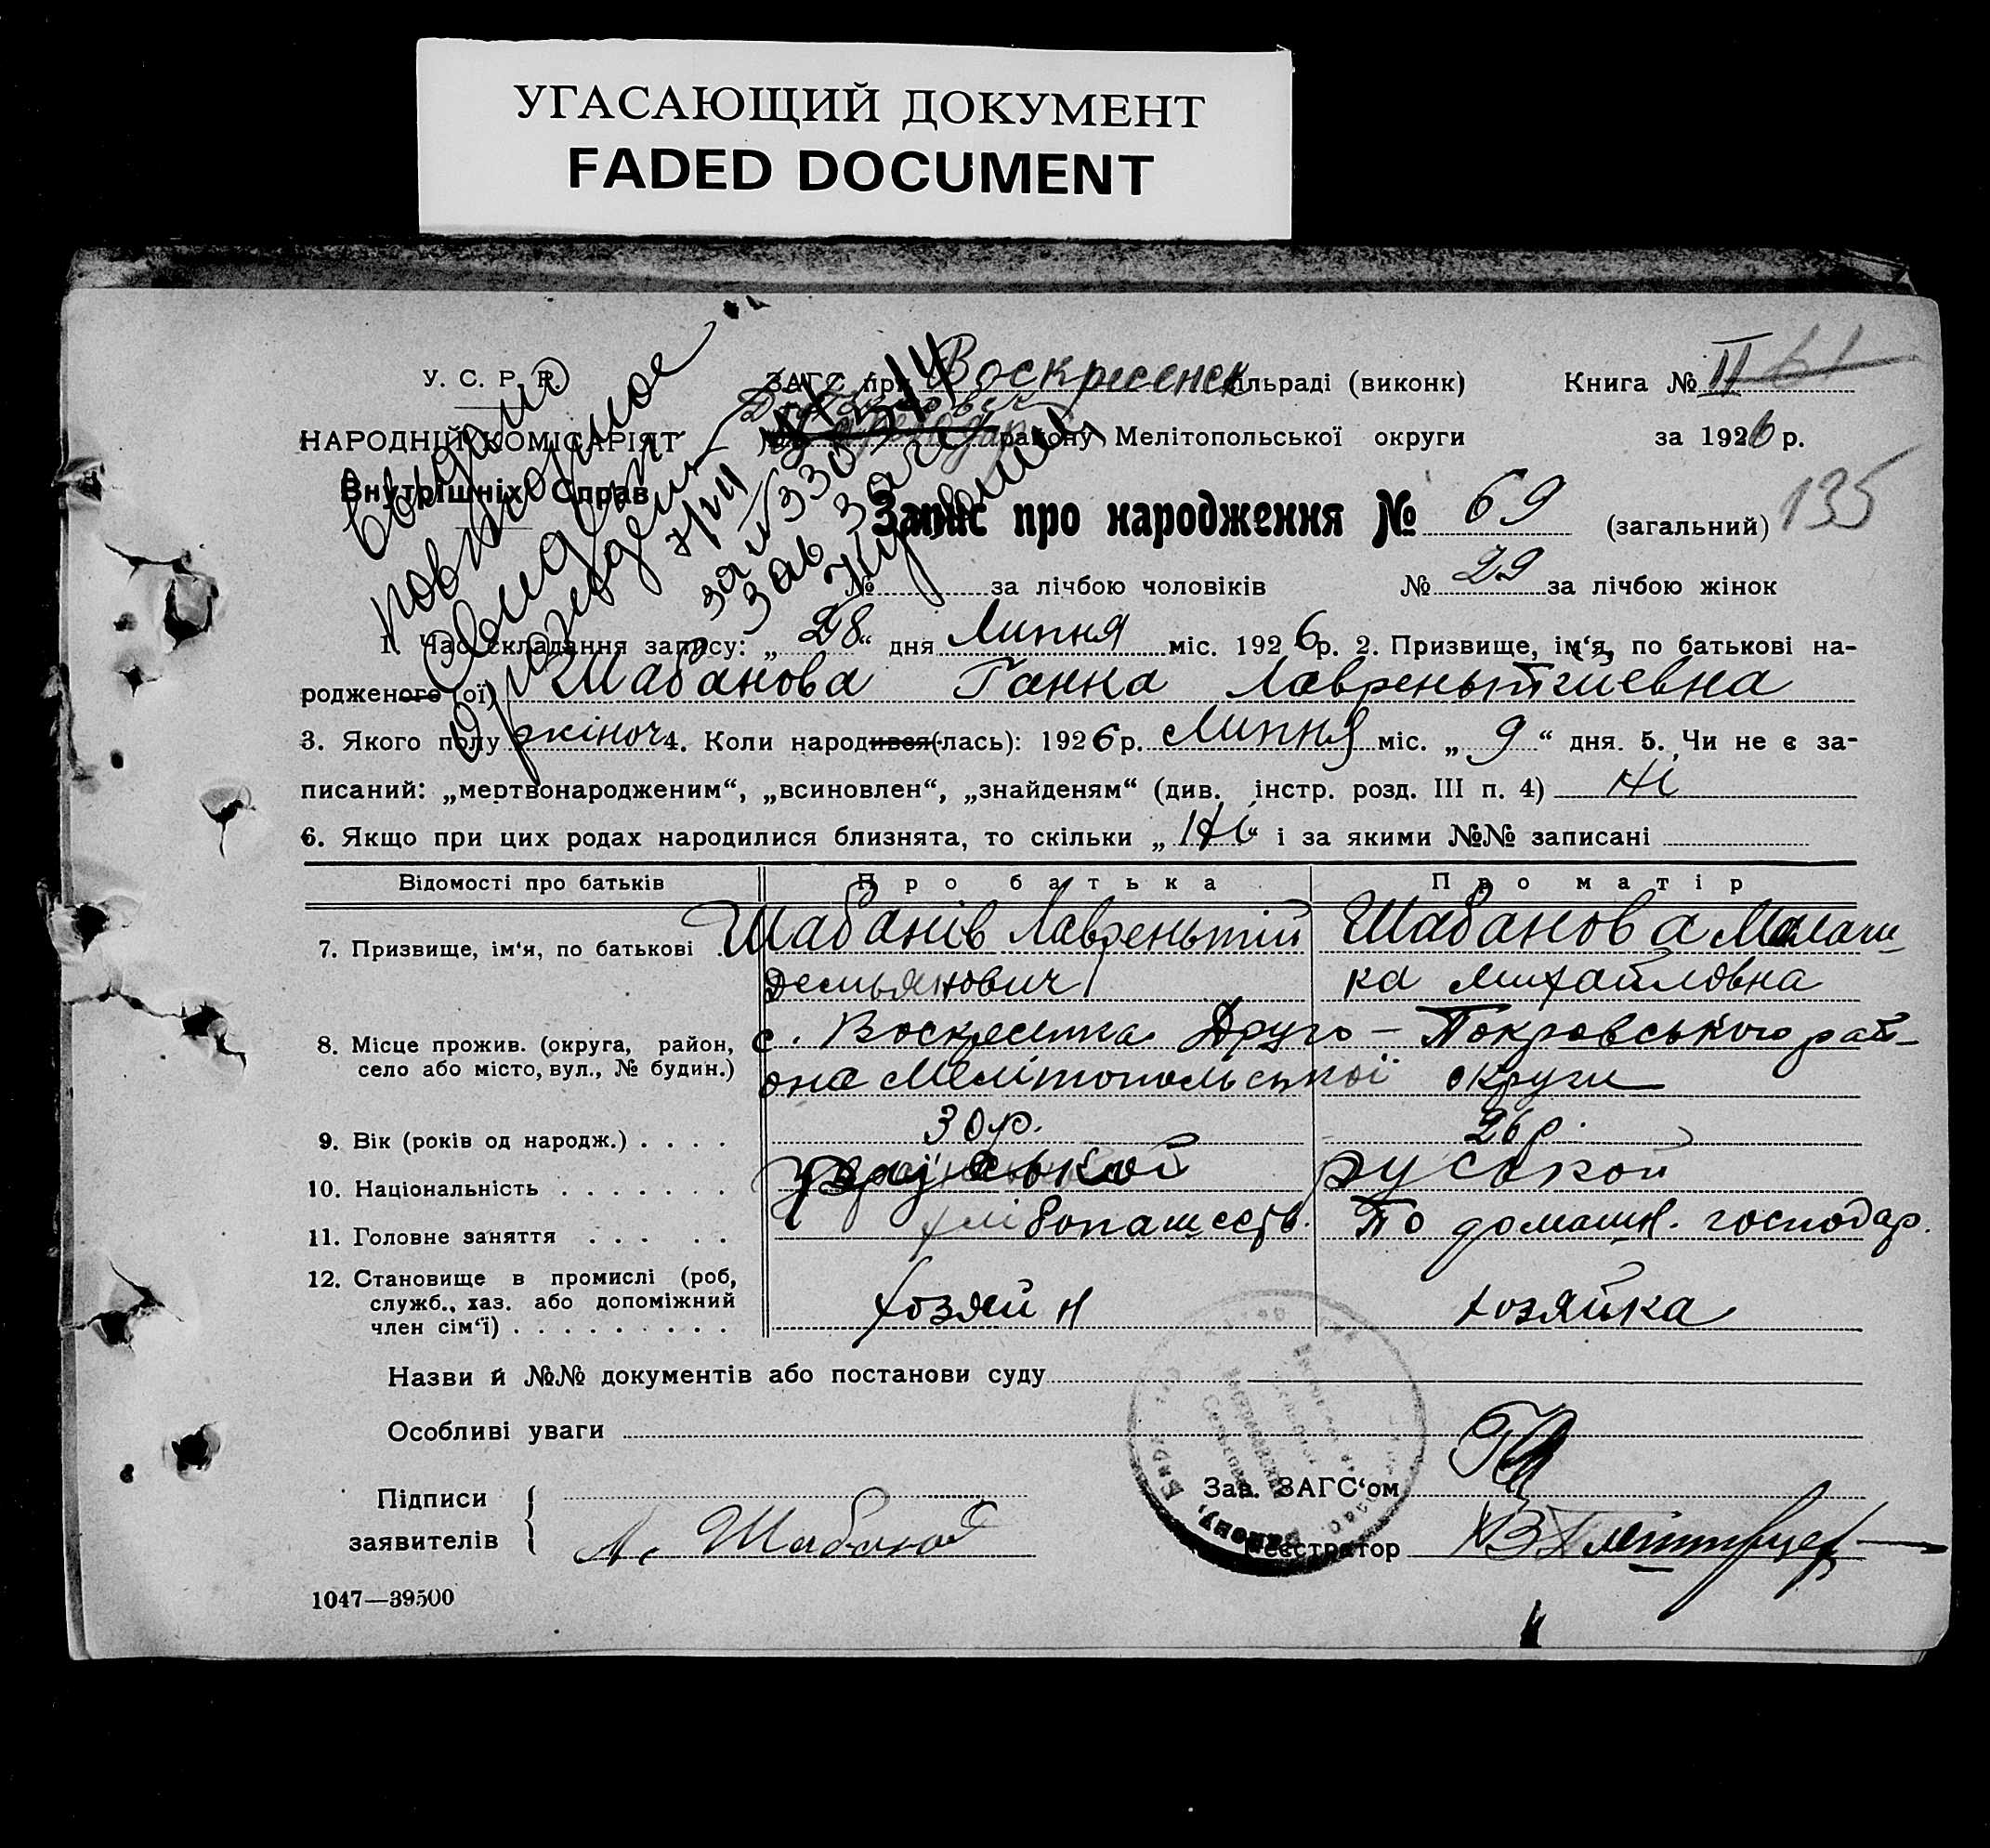 УГАСАЮЩИЙ ДОКУМЕНТ
FADED DOCUMENT
У. С. Р. Р.
НАРОДНІЙ КОМІСАРІЯТ
Внутрішніх Справ
Выдано
повторное
Свидет
о рождени
ЗАГС при Воскресенск сільраді (виконк)
Книга № II 61
району Мелітопольської округи
за 1926 р.
Запис про народження № 69 (загальний) 135
№ за лічбою чоловіків № 29 за лічбою жінок
1. Час складання запису: „28“ дня Липня міс. 1926 р. 2. Призвище, ім‘я, по батькові на-
родженого (ої) Шабанова Ганна Лавреньтиевна
3. Якого полу жіноч 4. Коли народився(лась): 1926 р. Липня міс. „9“ дня. 5. Чи не є за-
писаний: „мертвонародженим“, „всиновлен“, „знайденям“ (див. інстр. розд. III п. 4) Ні
6. Якщо при цих родах народилися близнята, то скільки „Ні“ і за якими №№ записані
Відомості про батьків Про батька Про матір
7. Призвище, ім‘я, по батькові Шабанів Лавреньтій Шабанова Малаш
демьянович ка михайловна
8. Місце прожив. (округа, район, с. Воскресенка Друго – Покровського рай-
село або місто, вул., № будин.) она Мелітопольської округи
9. Вік (років од народж.) . . . . 30 р. 26 р.
10. Національність . . . . . . . руськой
11. Головне заняття . . . . . хлібопашеств. По домашн. господар.
12. Становище в промислі (роб,
служб., хаз. або допоміжний
член сім‘ї) . . . . . . . . . хозяйн хозяйка
Назви й №№ документів або постанови суду
Особливі уваги
Підписи
заявителів
Л. Шабанов
Зав. ЗАГС‘ом
Реєстратор
1047—39500